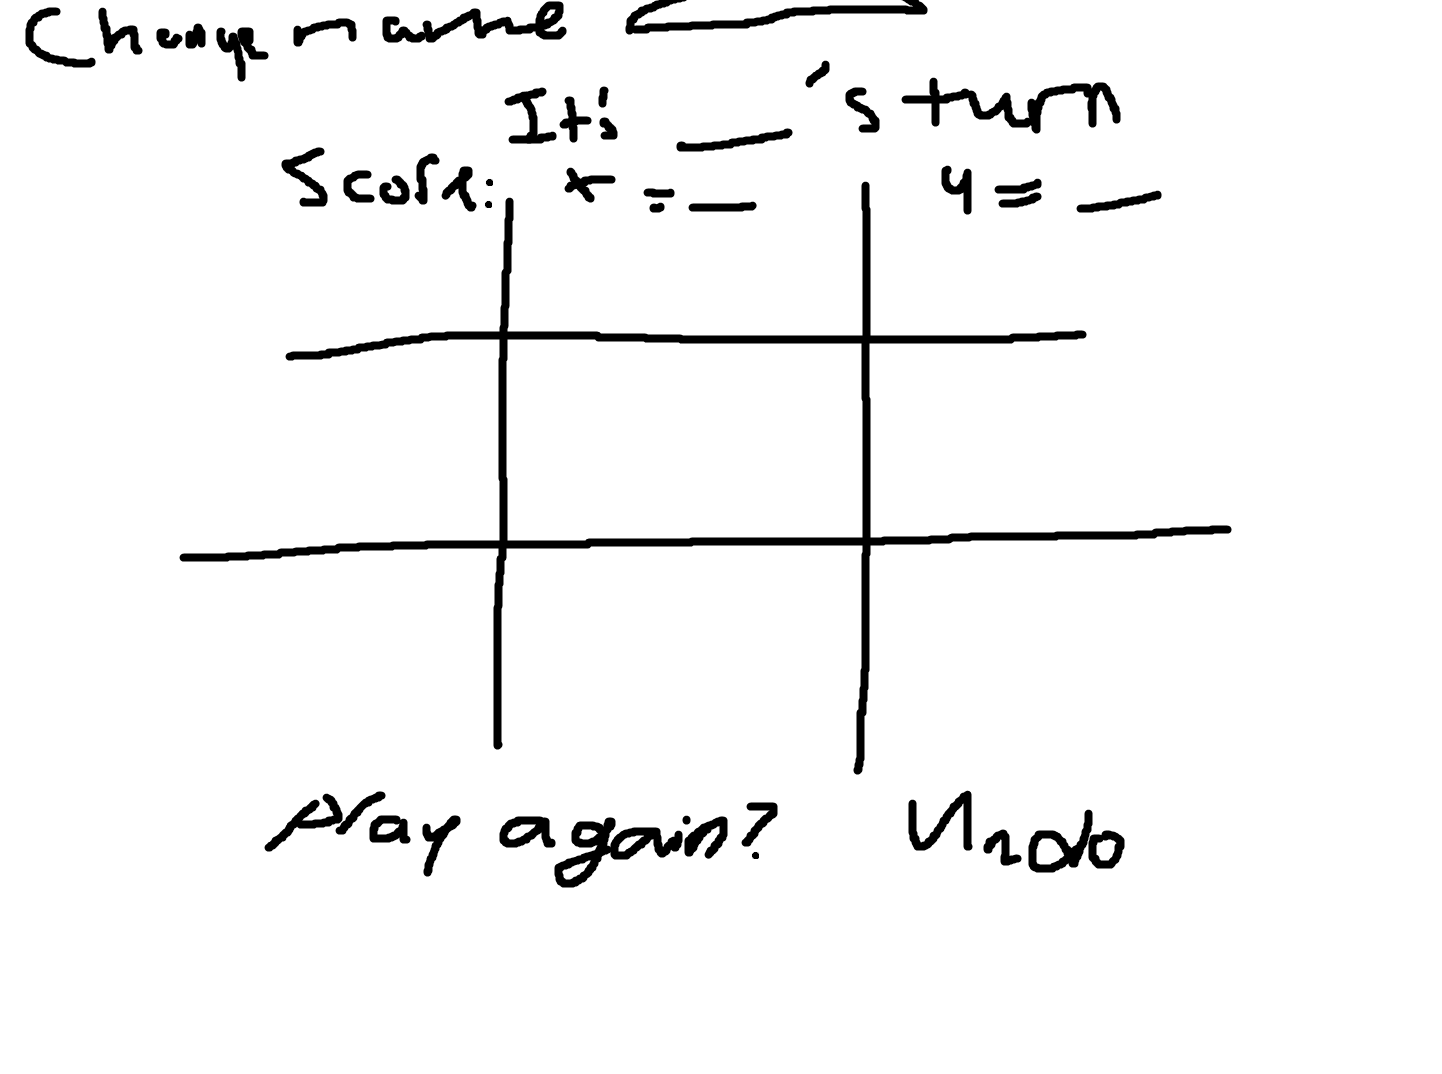 Change name
It's ___'s turn
Score: x = __ y = __
Play again? Undo